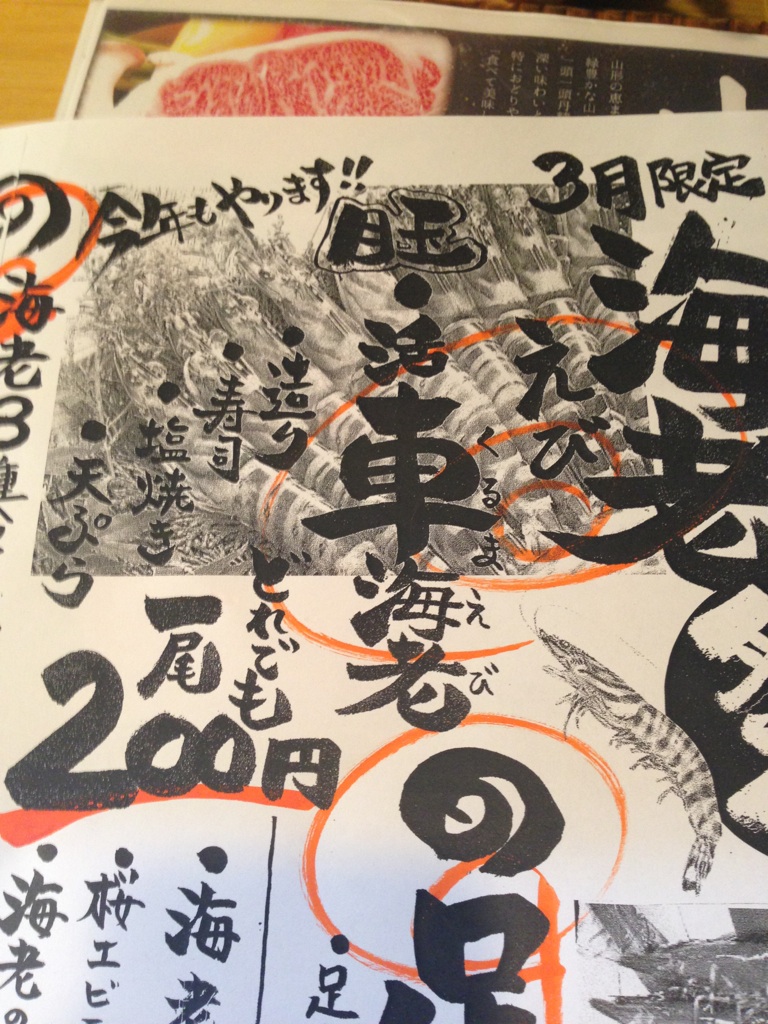 3月限定
海老
えび
今年もやります!!
目玉
・活車海老
くるまえび
・造り
・寿司
・塩焼き
・天ぷら
どれでも
一尾
200円
の
の
海老3種
・海老
・桜エビ
・海老の
・足
山形の恵ま
緑豊かな山
一頭一頭丹
深い味わい
特におどりや
食べて美味し